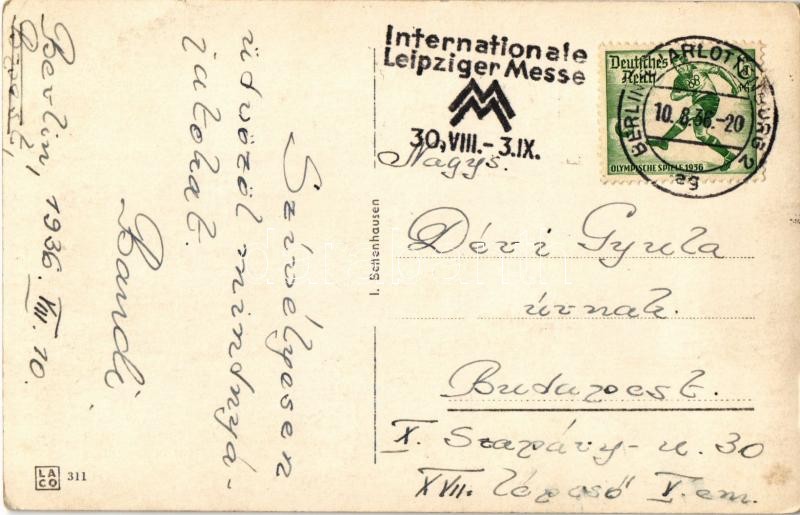 Internationale
Leipziger Messe
30.VIII.- 3.IX.
Deutsches
Reich
OLYMPISCHE SPIELE 1936
BERLIN-CHARLOTTENBURG 2
10.8.36.-20
ag
Nagys.
Dévi Gyula
úrnak.
Budapest.
X. Szapáry-u. 30
XVII. lépcső V. em.
Berlin, 1936. VIII. 10.
Szivélyesen
üdvözöl mindnyá-
jatokat.
Bandi
I. Sellenhausen
LA
CO
311